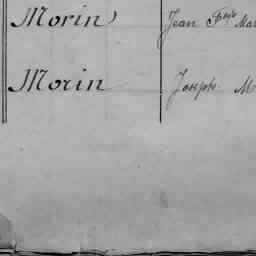 Morin Jean Fçois Mar
Morin Joseph M